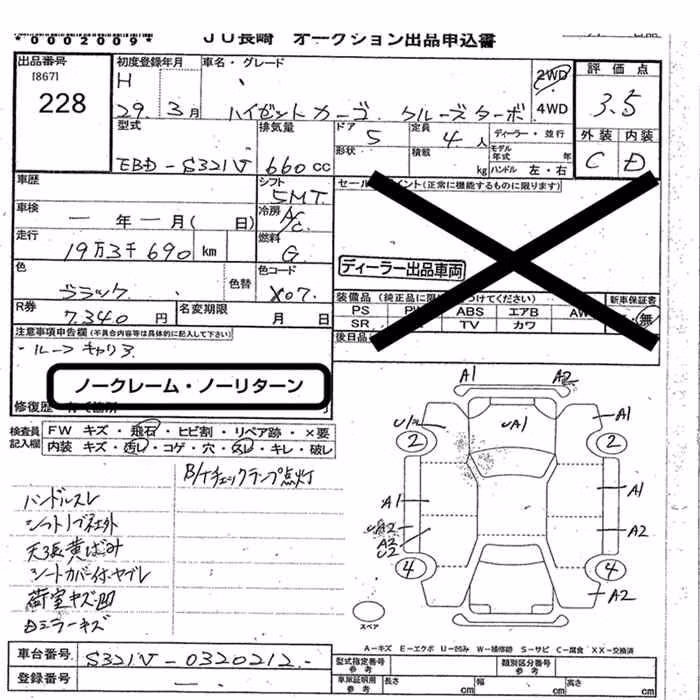 *0002009*
JU長崎 オークション出品申込書
出品番号
[867]
228
初度登録年月
H
29. 3月
車名・グレード
ハイゼットカーゴ クルーズターボ
2WD
4WD
評価点
3.5
外装 内装
C D
型式
EBD-S321V
排気量
660cc
ドア 5
形状
定員 4人
積載 kg
ディーラー・並行
モデル年式 年
ハンドル 左・右
車歴
シフト
5MT
セールスポイント(正常に機能するものに限ります)
車検
ー年ー月( 日)
冷房 A/C
走行
19万3千690 km
燃料
G
ディーラー出品車両
色
ブラック
色替
色コード
X07.
装備品(純正品に限
つけてください)
新車保証書
無
PS
ABS エアB AW
SR
TV カワ
R券
7,340円
名変期限
月 日
後日品
注意事項申告欄(不具合内容等は具体的に記入して下さい)
・ルーフキャリア
ノークレーム・ノーリターン
修復歴
検査員記入欄
FW キズ・飛石・ヒビ割・リペア跡・×要
内装 キズ・汚レ・コゲ・穴・スレ・キレ・破レ
B/Tチェックランプ点灯
ハンドルスレ
シフトノブ社外
天張黄ばみ
シートカバー付・ヤブレ
荷室キズ・凹
ミラーキズ
A1 A2
A1
UA1
2 2
A1 A1
A2
A2
U2
4 4
A2
スペア
A-キズ E-エクボ U-凹み W-補修跡 S-サビ C-腐食 XX-交換済
車台番号 S321V-0320212.-
登録番号 ー
型式指定番号 参考
類別区分番号 参考
車庫証明用 参考
長さ cm 幅 cm 高さ cm